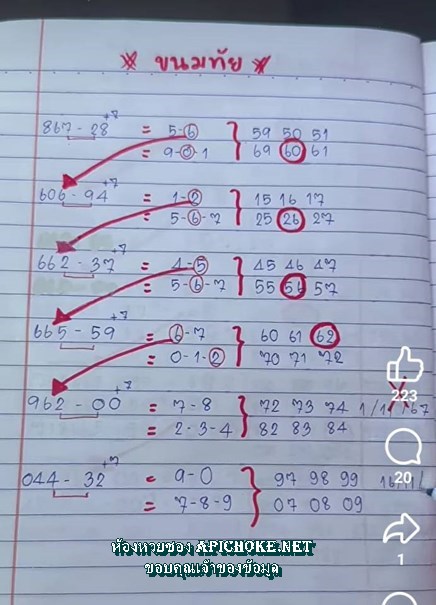 * ขนมทัย *
867 - 28 +7 = 5-6 } 59 50 51
= 9-0-1 69 60 61
606 - 94 +7 = 1-2 } 15 16 17
= 5-6-7 25 26 27
662 - 37 +7 = 4-5 } 45 46 47
= 5-6-7 55 56 57
665 - 59 +7 = 6-7 } 60 61 62
= 0-1-2 70 71 72
962 - 00 +7 = 7-8 } 72 73 74
= 2-3-4 82 83 84
044 - 32 +7 = 9-0 } 97 98 99
= 7-8-9 07 08 09
223
20
1
ห้องหวยซอง APICHOKE.NET
ขอบคุณเจ้าของข้อมูล